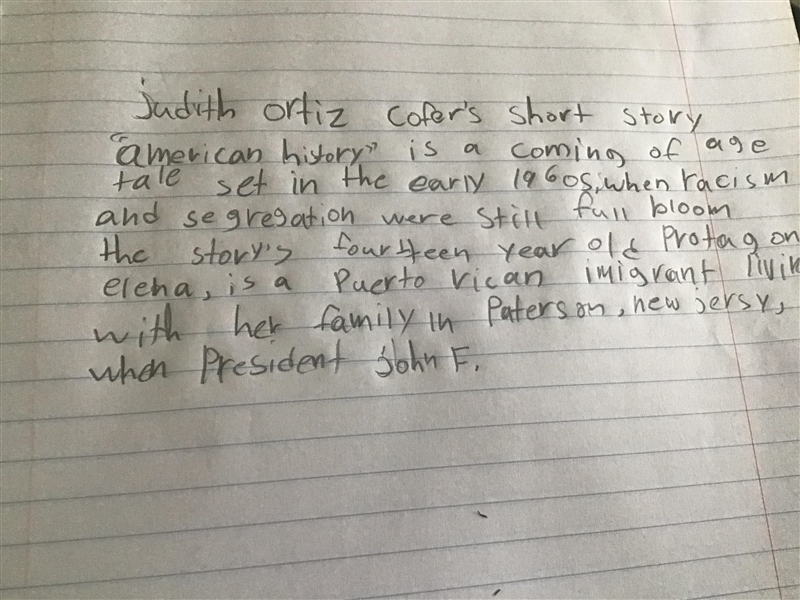 judith ortiz cofer's short story
"american history" is a coming of age
tale set in the early 1960s, when racism
and segregation were still full bloom
the story's fourteen year old Protagon
elena, is a Puerto rican imigrant livin
with her family in Paterson, new jersy,
when President john F.